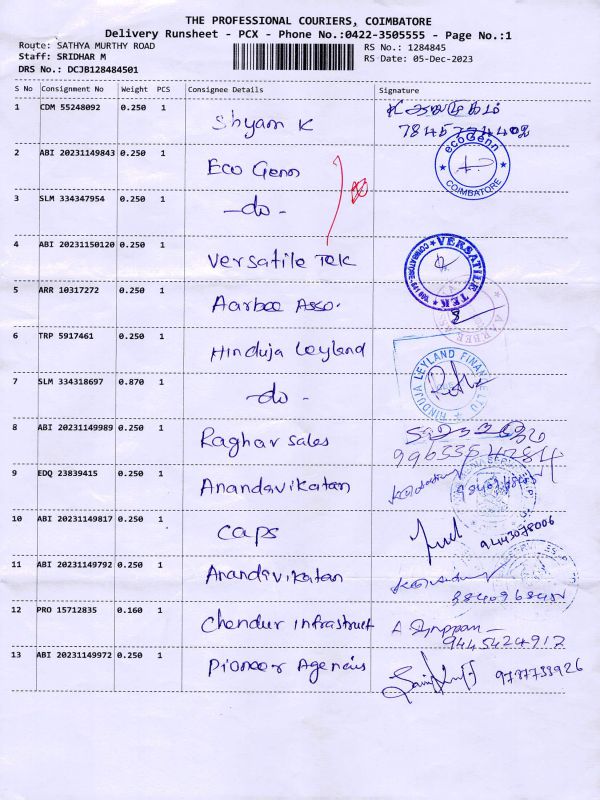 THE PROFESSIONAL COURIERS, COIMBATORE
Delivery Runsheet - PCX - Phone No.:0422-3505555 - Page No.:1
Route: SATHYA MURTHY ROAD RS No.: 1284845
Staff: SRIDHAR M RS Date: 05-Dec-2023
DRS No.: DCJB128484501
S No Consignment No Weight PCS Consignee Details Signature
1 CDM 55248092 0.250 1 Shyam K
2 ABI 20231149843 0.250 1 Eco Genn ecoGenn COIMBATORE
3 SLM 334347954 0.250 1 -do-
4 ABI 20231150120 0.250 1 Versatile Tek VERSATILE TEK
5 ARR 10317272 0.250 1 Aarbee Asso.
6 TRP 5917461 0.250 1 Hinduja Leyland HINDUJA LEYLAND FINANCE LTD
7 SLM 334318697 0.870 1 -do-
8 ABI 20231149989 0.250 1 Raghar Sales
9 EDQ 23839415 0.250 1 Anandavikatan
10 ABI 20231149817 0.250 1 Caps 9443078006
11 ABI 20231149792 0.250 1 Anandavikatan
12 PRO 15712835 0.160 1 Chendur infrastruct 9445424912
13 ABI 20231149972 0.250 1 Pioneer Agencies